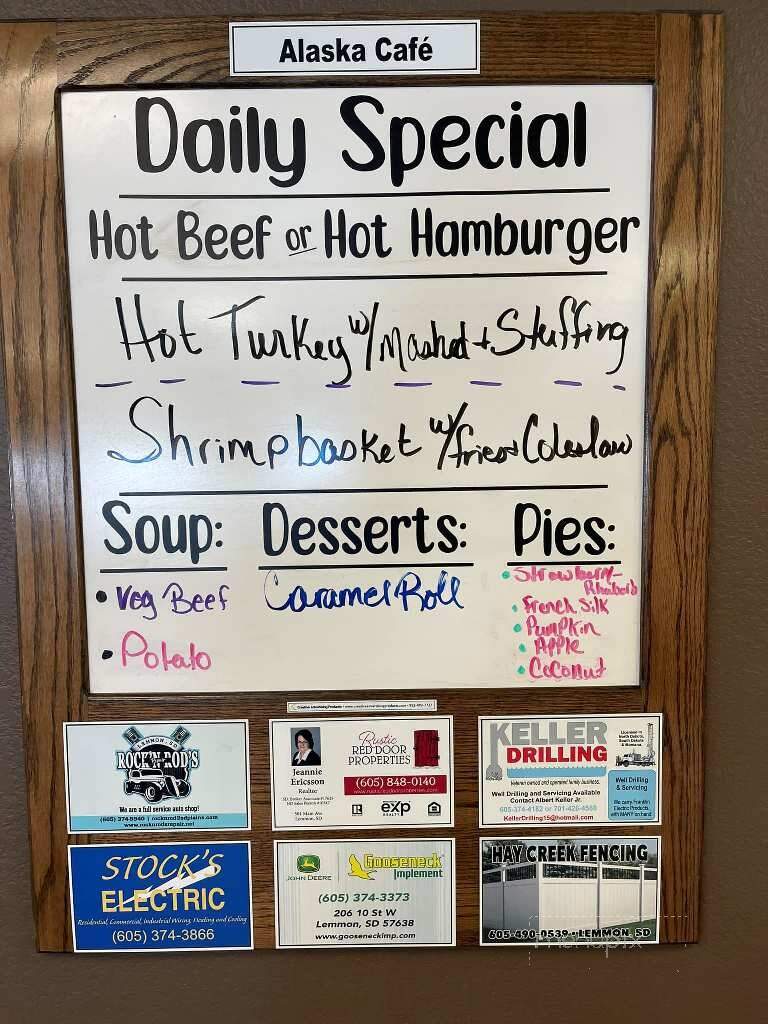 Alaska Café
Daily Special
Hot Beef or Hot Hamburger
Hot Turkey w/ Mashed + Stuffing
Shrimp basket w/ fries + Coleslaw
Soup:
• Veg Beef
• Potato
Desserts:
Caramel Roll
Pies:
• Strawberry-
Rhubarb
• French Silk
• Pumpkin
• Apple
• Coconut
LEMMON, SD
ROCK'N ROD'S
We are a full service auto shop!
Jeannie
Ericsson
Realtor
Lemmon, SD
Rustic
RED DOOR
PROPERTIES
(605) 848-0140
exp
REALTY
KELLER
DRILLING
Licensed in
North Dakota,
South Dakota
& Montana
Veteran owned and operated family business.
Well Drilling and Servicing Available
Contact Albert Keller Jr.
605-374-4182 or 701-426-4568
KellerDrilling15@hotmail.com
Well Drilling
& Servicing
STOCK'S
ELECTRIC
Residential, Commercial, Industrial Wiring, Heating and Cooling
(605) 374-3866
JOHN DEERE
Gooseneck
Implement
(605) 374-3373
206 10 St W
Lemmon, SD 57638
www.gooseneckimp.com
HAY CREEK FENCING
605-490-0539 • LEMMON, SD
menupix